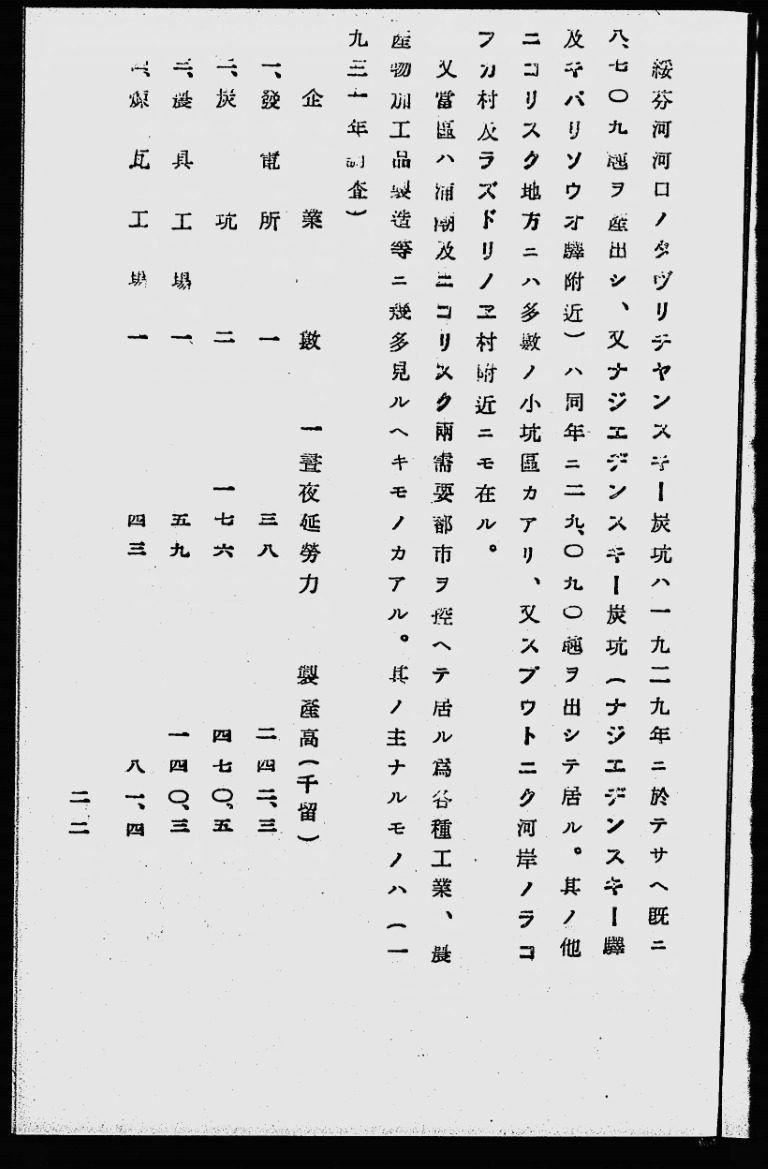 綏芬河河口ノタヴリチヤンスキー炭坑ハ一九二九年ニ於テサヘ既ニ
八、七〇九瓲ヲ産出シ、又ナジエヂンスキー炭坑(ナジエヂンスキー驛
及キパリソウオ驛附近)ハ同年ニ二九、〇九〇瓲ヲ出シテ居ル。其ノ他
ニコリスク地方ニハ多數ノ小坑區カアリ、又スプウトニク河岸ノラコ
フカ村及ラズドリノヱ村附近ニモ在ル。
又當區ハ浦潮及ニコリスク兩需要都市ヲ控ヘテ居ル爲各種工業、農
産物加工品製造等ニ幾多見ルヘキモノカアル。其ノ主ナルモノハ(一
九三一年調査)
企業 數 一晝夜延勞力 製産高(千留)
一、發電所 一 三八 二四二、三
二、炭坑 二 一七六 四七〇、五
三、農具工場 一 五九 一四〇、三
四、煉瓦工場 一 四三 八一、四
二二